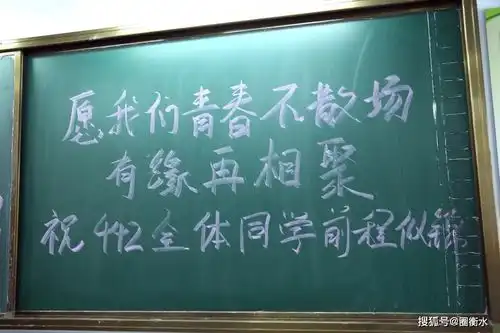 愿我们青春不散场
有缘再相聚
祝442全体同学前程似锦
搜狐号@圈衡水